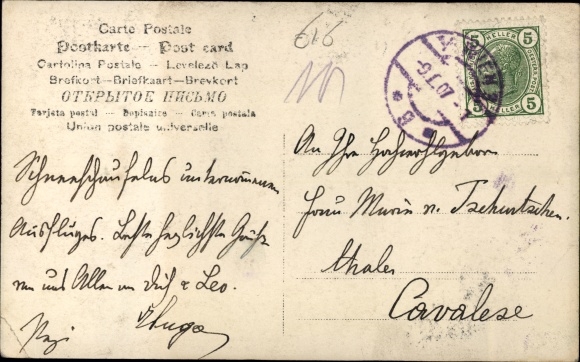 Carte Postale
Postkarte — Post card
Cartolina Postale — Levelező Lap
Brefkort—Briefkaart—Brevkort
ОТКРЫТОЕ ПИСЬМО
Tarjeta postal — Dopisnice — Carte postala
Union postale universelle
616
5 HELLER 5
5 HELLER 5
B
Schneeschaufelns unternommenen
Ausfluges. Beste herzlichste Grüße
von uns Allen an Dich & Leo.
An Ihre Hochwohlgeboren
Frau Marie v. Tschurtschen-
thaler
Cavalese